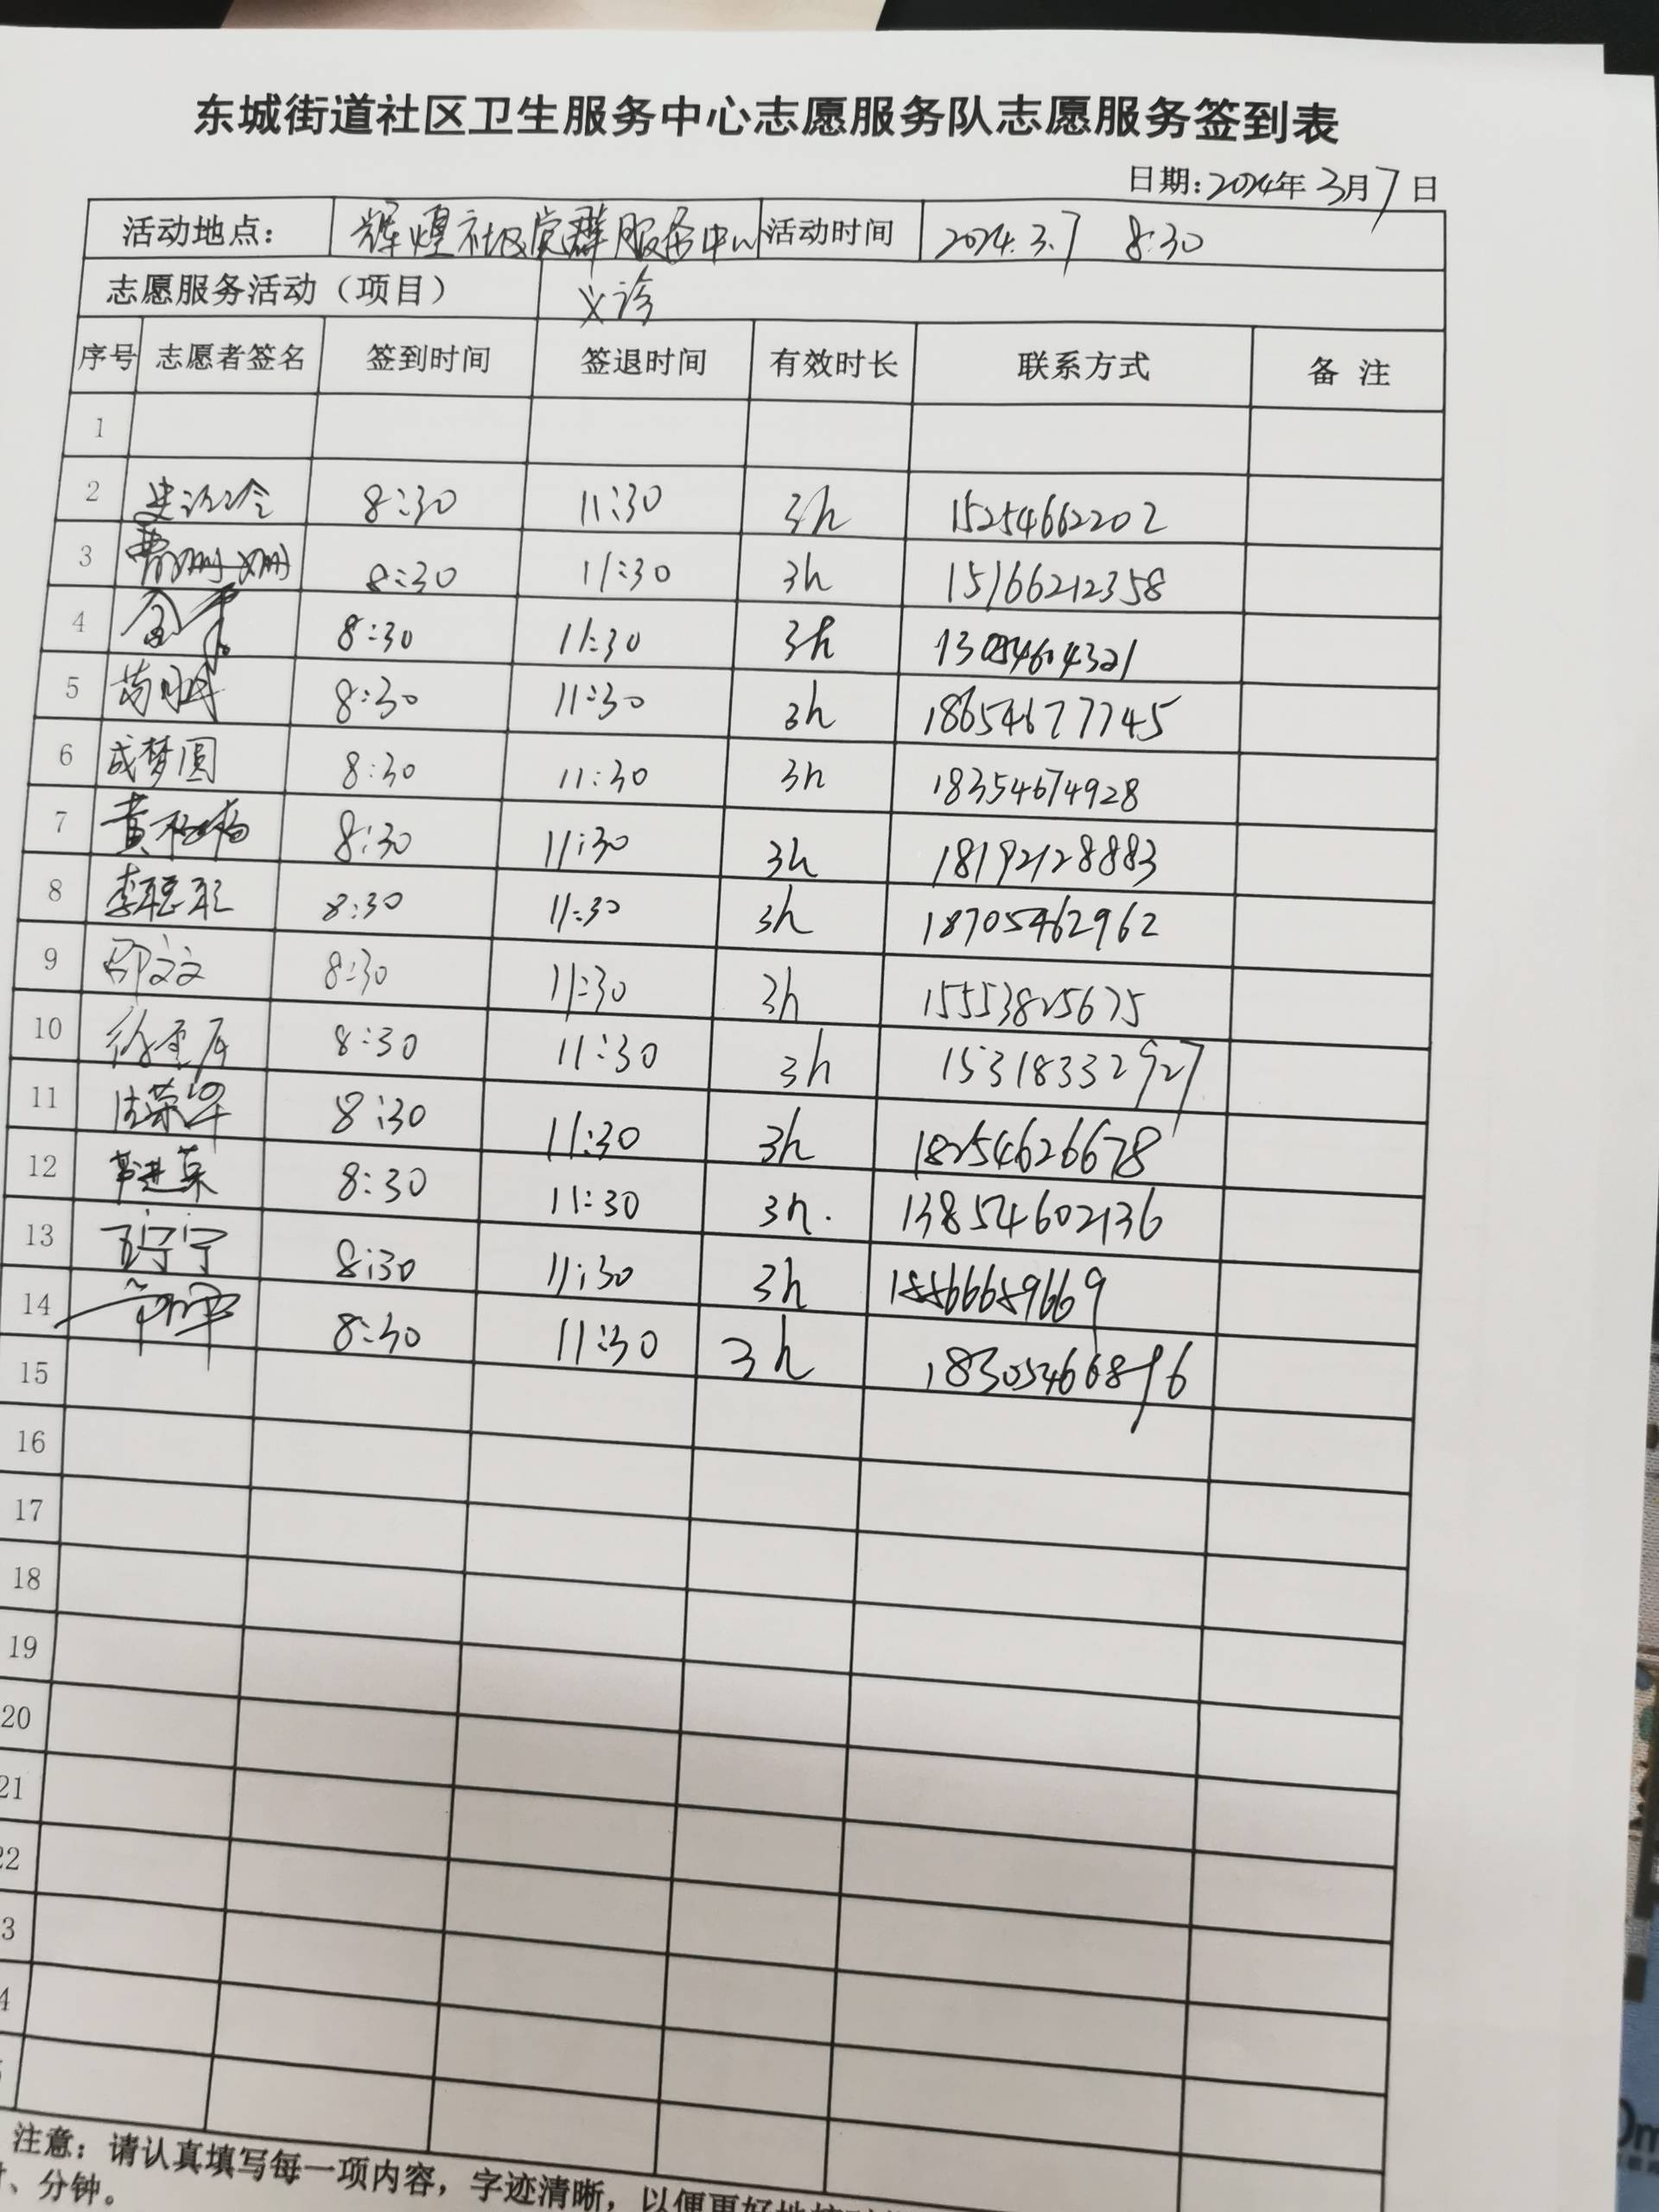 东城街道社区卫生服务中心志愿服务队志愿服务签到表
日期:2024年3月7日
活动地点: 辉煌社区党群服务中心 活动时间 2024.3.7 8:30
志愿服务活动（项目） 义诊
序号 志愿者签名 签到时间 签退时间 有效时长 联系方式 备 注
1
2 8:30 11:30 3h 15254662202
3 曹姗姗 8:30 11:30 3h 15166212358
4 8:30 11:30 3h 13054604321
5 8:30 11:30 3h 18654677745
6 成梦圆 8:30 11:30 3h 18354674928
7 黄 8:30 11:30 3h 18192128883
8 李聪聪 8:30 11:30 3h 18705462962
9 邵文文 8:30 11:30 3h 15553825675
10 8:30 11:30 3h 15318332927
11 8:30 11:30 3h 18254626678
12 8:30 11:30 3h. 13854602136
13 宁宁 8:30 11:30 3h 18866689669
14 8:30 11:30 3h 18305466896
15
16
17
18
19
20
21
22
3
4
注意: 请认真填写每一项内容, 字迹清晰, 以便更好地
、分钟。